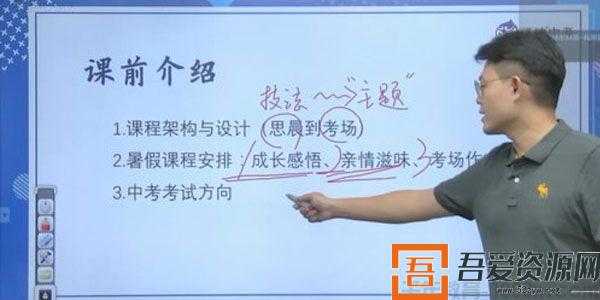 课前介绍
技法 "主题"
1.课程架构与设计(思晨到考场)
1 2 3
2.暑假课程安排:成长感悟、亲情滋味、考场作
3.中考考试方向
吾爱资源网